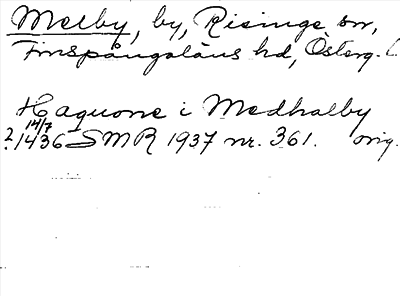 Melby, by, Risinge sn,
Finspångaläns hd, Österg. L
Haquone i Medhalby
14/7
? 1436 SMR 1937 nr. 361. orig.